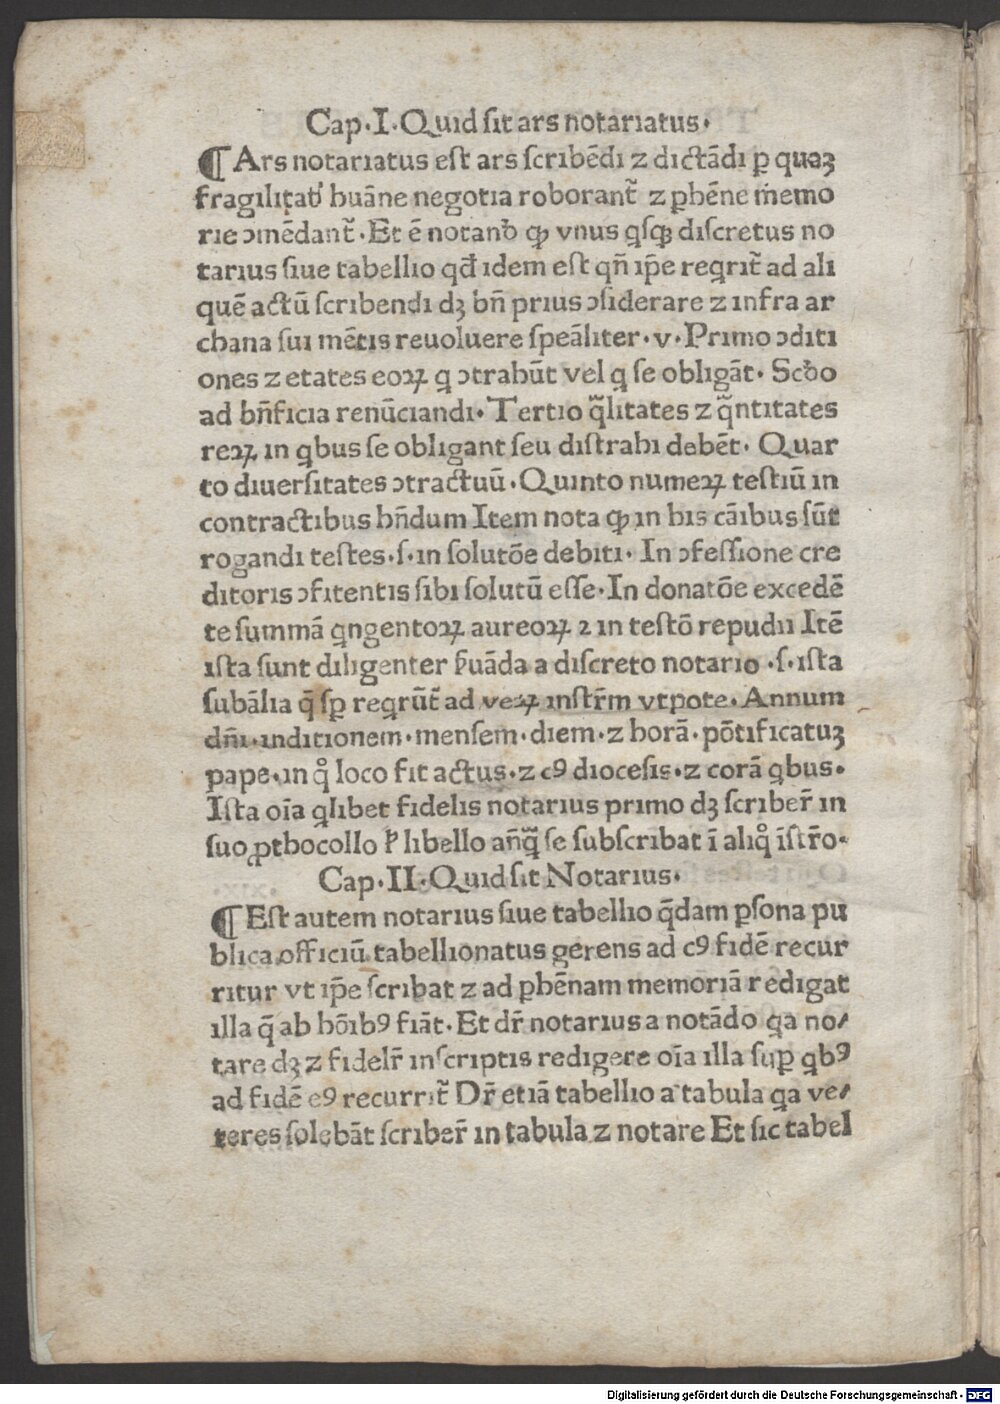 Cap·I·Quid sit ars notariatus·
¶Ars notariatus est ars scribēdi ⁊ dictādi ꝑ quaꝫ
fragilitatꝭ huāne negotia roborant᷑ ⁊ ꝑhēne memo
rie ↄmēdant᷑·Et ē notanđ ꝙ vnus qͥsqꝫ discretus no
tarius siue tabellio qđ idem est qn̄ ip̄e reqͥrit᷑ ad ali
quē actū scribendi dꝫ bn̄ prius ↄsiderare ⁊ infra ar
chana sui mētis reuoluere speāliter·v·Primo ↄditi
ones ⁊ etates eoꝝ qͥ ↄtrahūt vel qͥ se obligāt· Scđo
ad bn̄ficia renūciandi· Tertio qͣlitates ⁊ qͣntitates
reꝝ in qͥbus se obligant seu distrahi debēt· Quar
to diuersitates ↄtractuū·Quinto numeꝝ testiū in
contractibus hn̄dum Item nota ꝙ in his cāibus sūt
rogandi testes·s·in solutōe debiti· In ↄfessione cre
ditoris ↄfitentis sibi solutū esse·In donatōe excedē
te summā qͥngentoꝝ aureoꝝ ⁊ in testō repudii Itē
ista sunt diligenter ẜuāda a discreto notario ·s·ista
subālia q̄ sꝑ reqͥrūt᷑ ad veꝝ instr̄m vtpote·Annum
dn̄i·inditionem·mensem·diem·⁊ horā·pōtificatuꝫ
pape·in qͦ loco fit actus·⁊ cꝰ diocesis·⁊ corā qͥbus·
Ista oīa qͥlibet fidelis notarius primo dꝫ scriber̄ in
suo ꝓthocollo ł libello an̄qͣ̄ se subscribat ī aliqͦ īstr̄o·
Cap·II·Quid sit Notarius·
¶Est autem notarius siue tabellio qͣdam ꝑsona pu
blica officiū tabellionatus gerens ad cꝰ fidē recur
ritur vt ip̄e scribat ⁊ ad ꝑhēnam memoriā redigat
illa q̄ ab hōibꝰ fiāt·Et dr̄ notarius a notādo qͥa no/
tare dꝫ ⁊ fidelr̄ inscriptis redigere oīa illa suꝑ qͥbꝰ
ad fidē eꝰ recurrit᷑ Dr̄ etiā tabellio a tabula qͥa ve/
teres solebāt scriber̄ in tabula ⁊ notare Et sic tabel
Digitalisierung gefördert durch die Deutsche Forschungsgemeinschaft · DFG